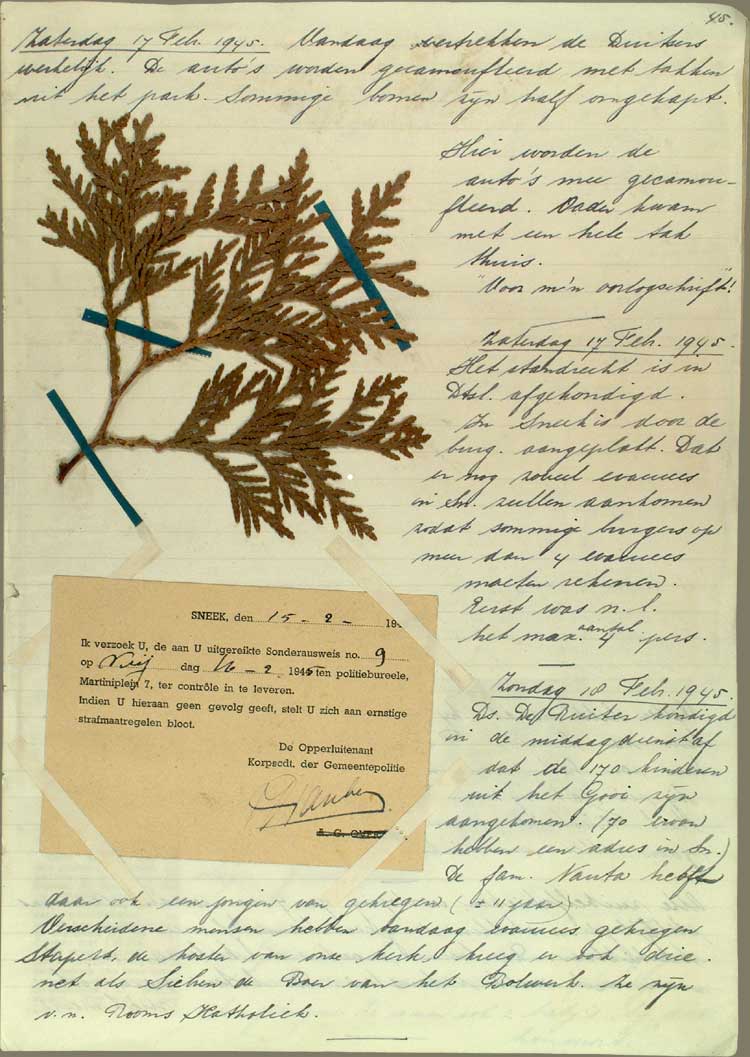 45.
Zaterdag 17 Feb. 1945. Vandaag vertrekken de Duitsers
werkelijk. De auto's worden gecamoufleerd met takken
uit het park. Sommige bomen zijn half omgekapt.
Hier worden de
auto's mee gecamou-
fleerd. Vader kwam
met een hele tak
thuis.
"Voor m'n oorlogschrift"!
Zaterdag 17 Feb. 1945.
Het standrecht is in
Dtsl. afgekondigd.
In Sneek is door de
burg. aangeplakt. Dat
er nog zoveel evacuees
in Sn. zullen aankomen
zodat sommige burgers op
meer dan 4 evacuees
moeten rekenen.
Eerst was n.l.
het max. aantal 4 pers.
SNEEK, den 15 - 2 - 19
Ik verzoek U, de aan U uitgereikte Sonderausweis no. 9
op Vrij dag 16 - 2 1945 ten politiebureele,
Martiniplein 7, ter contrôle in te leveren.
Indien U hieraan geen gevolg geeft, stelt U zich aan ernstige
strafmaatregelen bloot.
De Opperluitenant
Korpscdt. der Gemeentepolitie
Zondag 18 Feb. 1945.
Ds. De Ruiter kondigd
in de middagdienst af
dat de 170 kinderen
uit het Gooi zijn
aangekomen. (70 ervan
hebben een adres in Sn.)
De fam. Nauta heeft
daar ook een jongen van gekregen (± 11 jaar)
Verscheidene mensen hebben vandaag evacués gekregen
Stapert, de koster van onze kerk, kreeg er ook drie.
net als Sieben de Boer van het Bolwerk. Ze zijn
v.n. Rooms Katholiek.